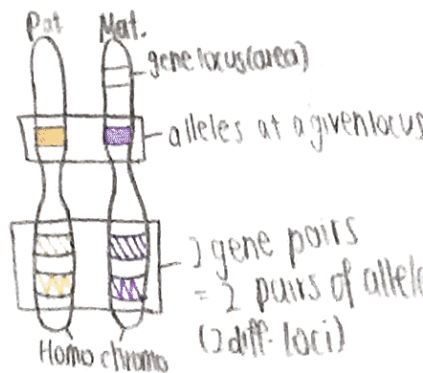 Pat Mat.
gene locus (area)
alleles at a given locus
2 gene pairs
= 2 pairs of allele
(2 diff. loci)
Homo chromo